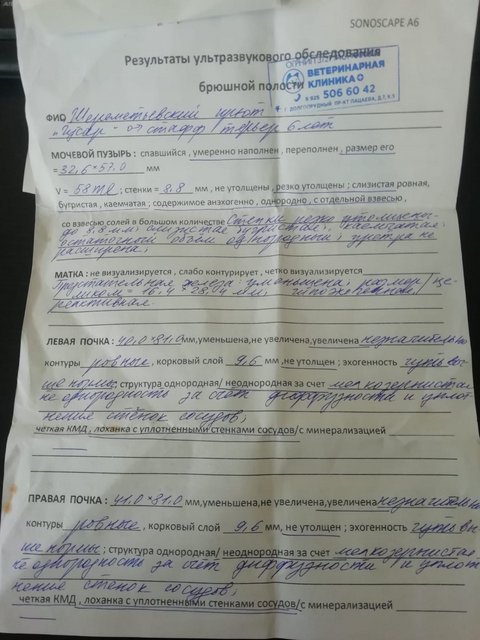 SONOSCAPE A6
Результаты ультразвукового обследования
брюшной полости
ВЕТЕРИНАРНАЯ
КЛИНИКА
8 925 506 60 42
Г. ДОЛГОПРУДНЫЙ ПР-КТ ПАЦАЕВА, Д.7, К.5
ФИО Шереметьевский приют
"Цезар" стафф/терьер 6 лет
МОЧЕВОЙ ПУЗЫРЬ: спавшийся, умеренно наполнен, переполнен, размер его
=32,6*57,0 мм
V = 58 ml; стенки = 8.8 мм, не утолщены, резко утолщены; слизистая ровная,
бугристая, каемчатая; содержимое анэхогенно, однородно, с отдельной взвесью,
со взвесью солей в большом количестве Стенки резко утолщены
до 8.8 мм; слизистая бугристая, каемчатая;
остаточный объем однородный; уретра не
расширена;
МАТКА: не визуализируется, слабо контурирует, четко визуализируется
Предстательная железа: уменьшена, размер
мм; гипоэхогенная,
ЛЕВАЯ ПОЧКА: 40,0*81,0 мм, уменьшена, не увеличена, увеличена незначительно
контуры ровные, корковый слой 9,6 мм, не утолщен; эхогенность чуть вы-
ше нормы; структура однородная/ неоднородная за счет мелкозернистая
неоднородность за счет диффузности и уплот
нение стенок сосудов;
четкая КМД, лоханка с уплотненными стенками сосудов/с минерализацией
ПРАВАЯ ПОЧКА: 41,0*81,0 мм, уменьшена, не увеличена, увеличена незначительно
контуры ровные, корковый слой 9,6 мм, не утолщен; эхогенность чуть вы-
ше нормы; структура однородная/ неоднородная за счет мелкозернистая
неоднородность за счет диффузности и уплот
нение стенок сосудов;
четкая КМД, лоханка с уплотненными стенками сосудов/с минерализацией